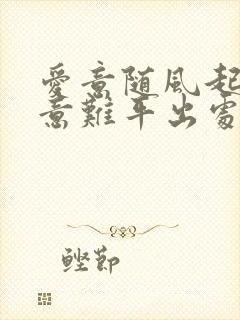 愛意随風起
意難平出處
鰹節